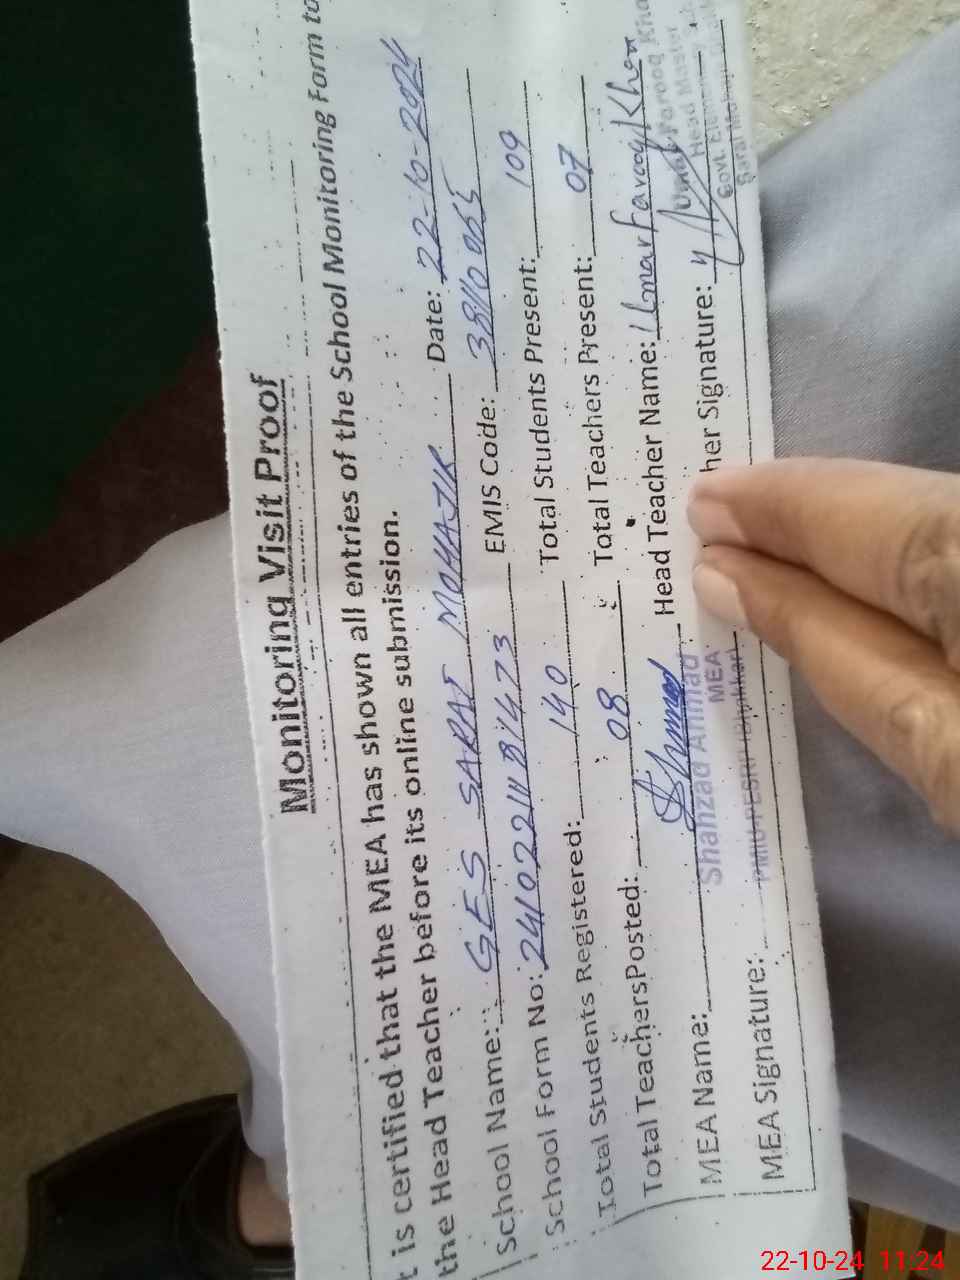 Monitoring Visit Proof
t is certified that the MEA has shown all entries of the School Monitoring Form to
the Head Teacher before its online submission.
School Name: GES SARAI MOHAJIR Date: 22-10-2024
School Form No: EMIS Code:
Total Students Registered: 140 Total Students Present: 109
Total Teachers Posted: 08 Total Teachers Present: 07
MEA Name: Head Teacher Name: Umar Farooq Khan
Shahzad Ahmad
MEA
MEA Signature: her Signature:
Umar Farooq Kha
Head Master
Govt. Elementary
Sarai Mohajir
22-10-24 11:24